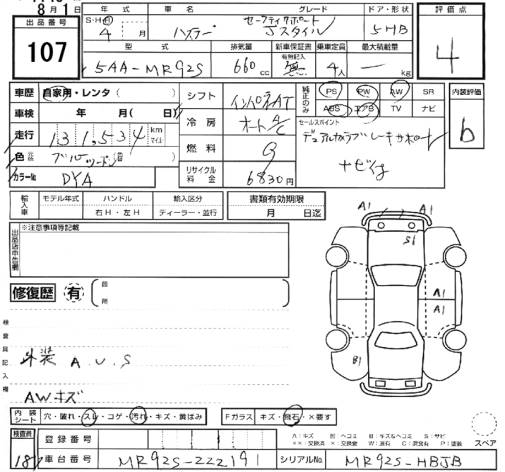 8月1
出品番号 107
年式 車名 グレード ドア・形状
S・H 4 年 月 ハスラー セーフティサポート Jスタイル 5HB
型式 排気量 新車保証書 乗車定員 最大積載量
有無記入
5AA-MR92S 660 cc 無 4人 kg
評価点
4
車歴 自家用・レンタ( )
車検 年 月( 日)
走行 131,534 km マイル
色 ( )
カラー№ DYA
シフト インパネAT
冷房 オートA/C
燃料 G
リサイクル料金 6830円
純正のみ PS PW AW SR
ABS エアB TV ナビ
セールスポイント
デュアルカメラブレーキサポート
ナビ付
内装評価
b
輸入車 モデル年式 ハンドル 輸入区分 書類有効期限
年 右H・左H ディーラー・並行 月 日迄
※注意事項等記載
修復歴 有 箇所
検査員記入欄
外装 A U S
AWキズ
A1 A1
S1
A1
A1
B1
内装シート 穴・破れ・スレ・コゲ・汚れ・キズ・黄ばみ Fガラス キズ・飛石・×要す
スペア
検査員 登録番号
187 車台番号 MR92S-222191 シリアルNo. MR92S-HBJB